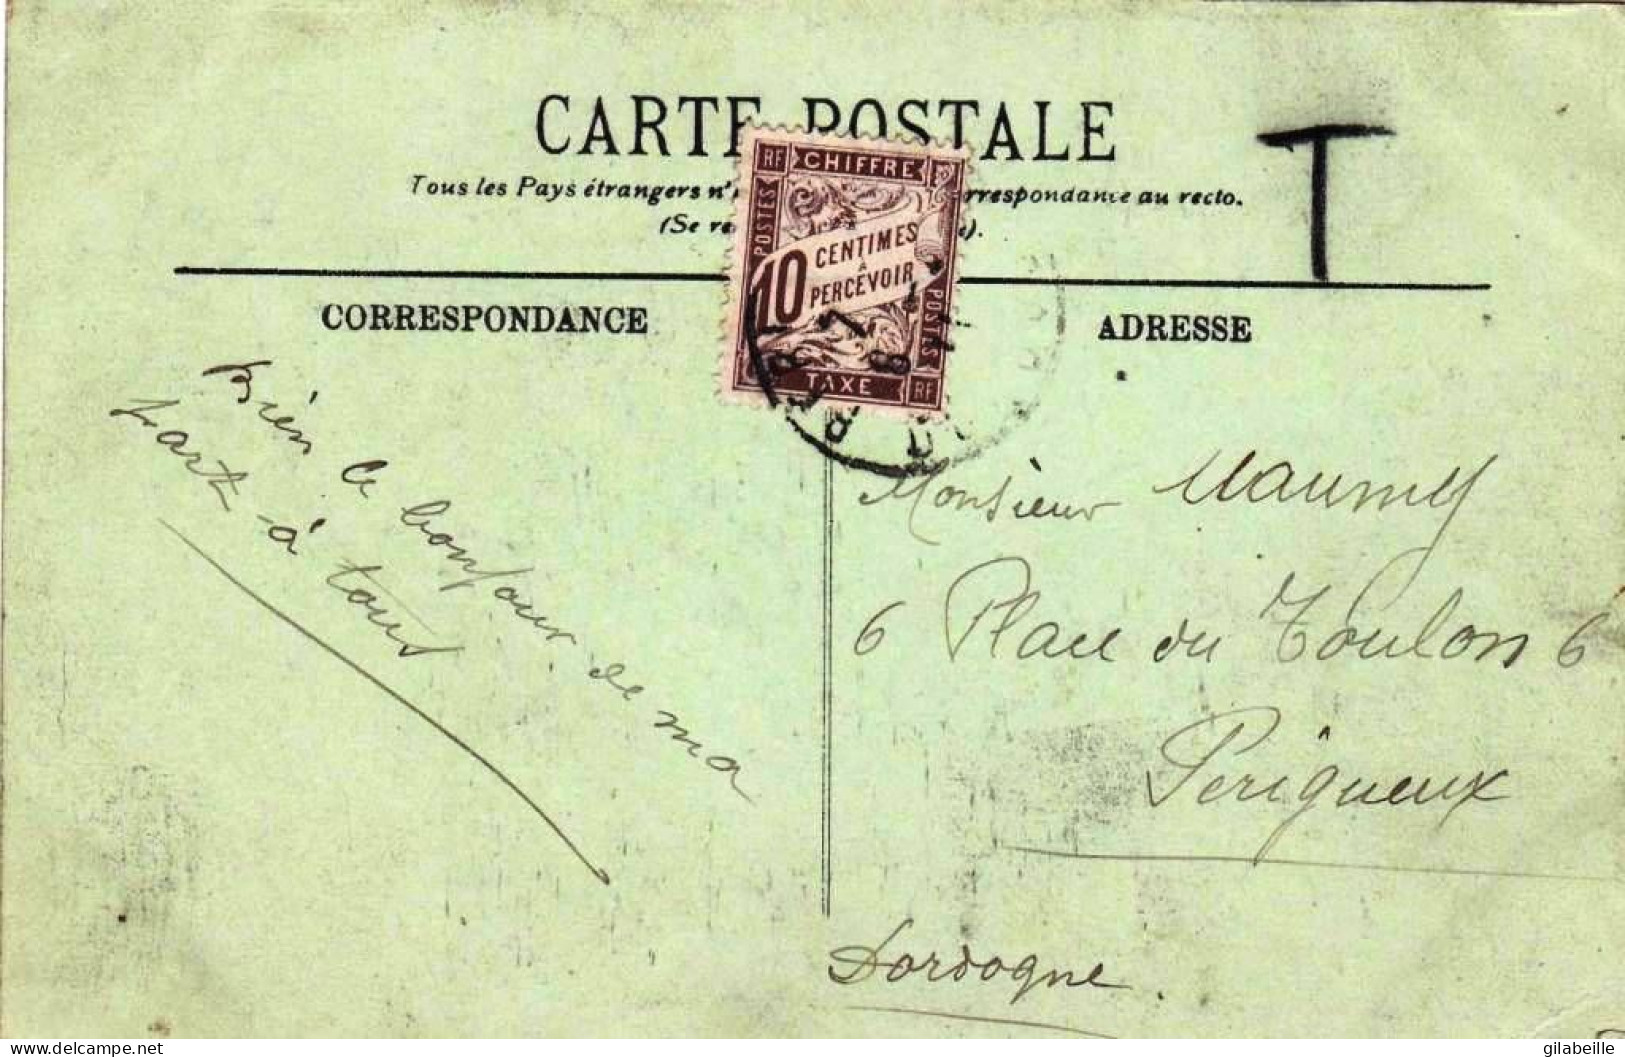 CARTE POSTALE
T
Tous les Pays étrangers n' rrespondance au recto.
(Se re ).
RF CHIFFRE
POSTES
10 CENTIMES
À
PERCEVOIR
POSTES
TAXE RF
CORRESPONDANCE
ADRESSE
Bien le bonjour de ma
part à tous
Monsieur Maumy
6 Place du Toulon 6
Perigueux
Dordogne
gilabeille